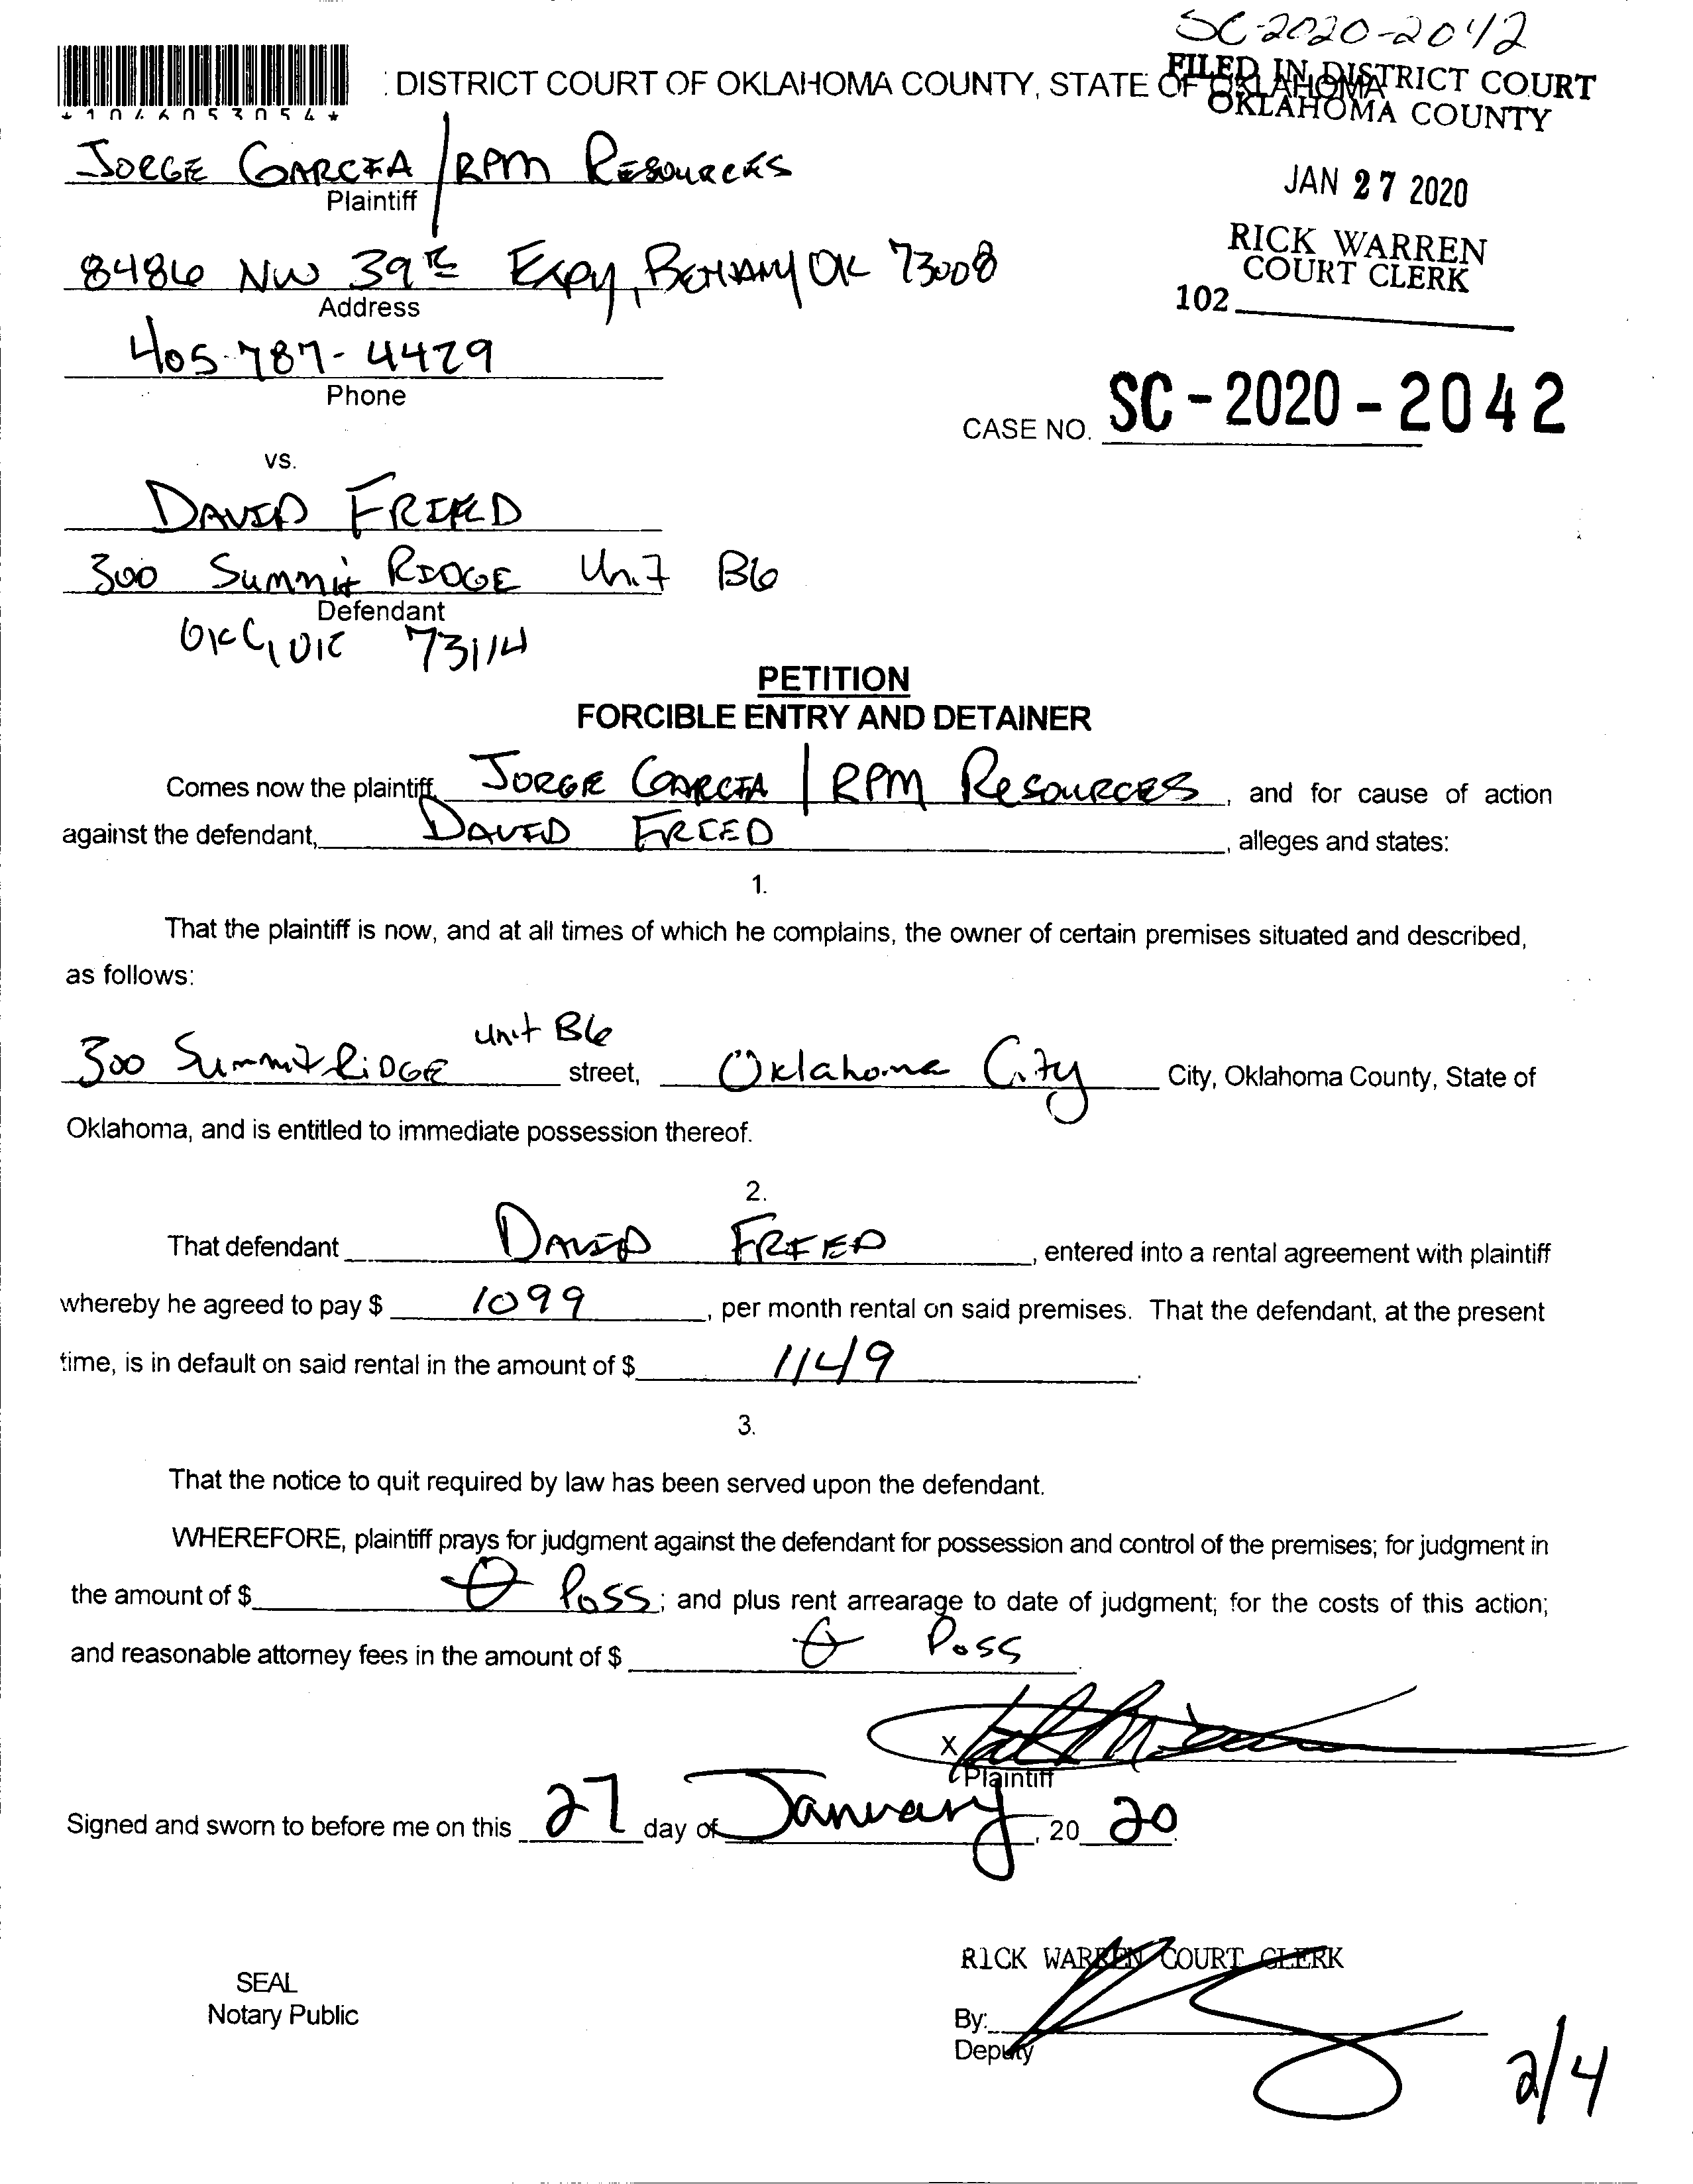 SC-2020-2042
: DISTRICT COURT OF OKLAHOMA COUNTY, STATE OF OKLAHOMA
FILED IN DISTRICT COURT
OKLAHOMA COUNTY
*1046053054*
JORGE GARCIA / RPM RESOURCES
Plaintiff
JAN 27 2020
RICK WARREN
COURT CLERK
102
8486 NW 39th EXPY, BETHANY OK 73008
Address
405-787-4429
Phone
CASE NO. SC-2020-2042
vs.
DAVID FRIED
300 Summit RIDGE Unit B6
Defendant
OKC, OK 73114
PETITION
FORCIBLE ENTRY AND DETAINER
Comes now the plaintiff, JORGE GARCIA / RPM RESOURCES, and for cause of action
against the defendant, DAVID FRIED, alleges and states:
1.
That the plaintiff is now, and at all times of which he complains, the owner of certain premises situated and described,
as follows:
unit B6
300 Summit RiDGE street, Oklahoma City City, Oklahoma County, State of
Oklahoma, and is entitled to immediate possession thereof.
2.
That defendant DAVID FRIED, entered into a rental agreement with plaintiff
whereby he agreed to pay $ 1099, per month rental on said premises. That the defendant, at the present
time, is in default on said rental in the amount of $ 1149.
3.
That the notice to quit required by law has been served upon the defendant.
WHEREFORE, plaintiff prays for judgment against the defendant for possession and control of the premises; for judgment in
the amount of $ Poss; and plus rent arrearage to date of judgment; for the costs of this action;
and reasonable attorney fees in the amount of $ Poss.
X
Plaintiff
Signed and sworn to before me on this 27 day of January, 20 20.
RICK WARREN COURT CLERK
SEAL
Notary Public
By:
Deputy
2/4